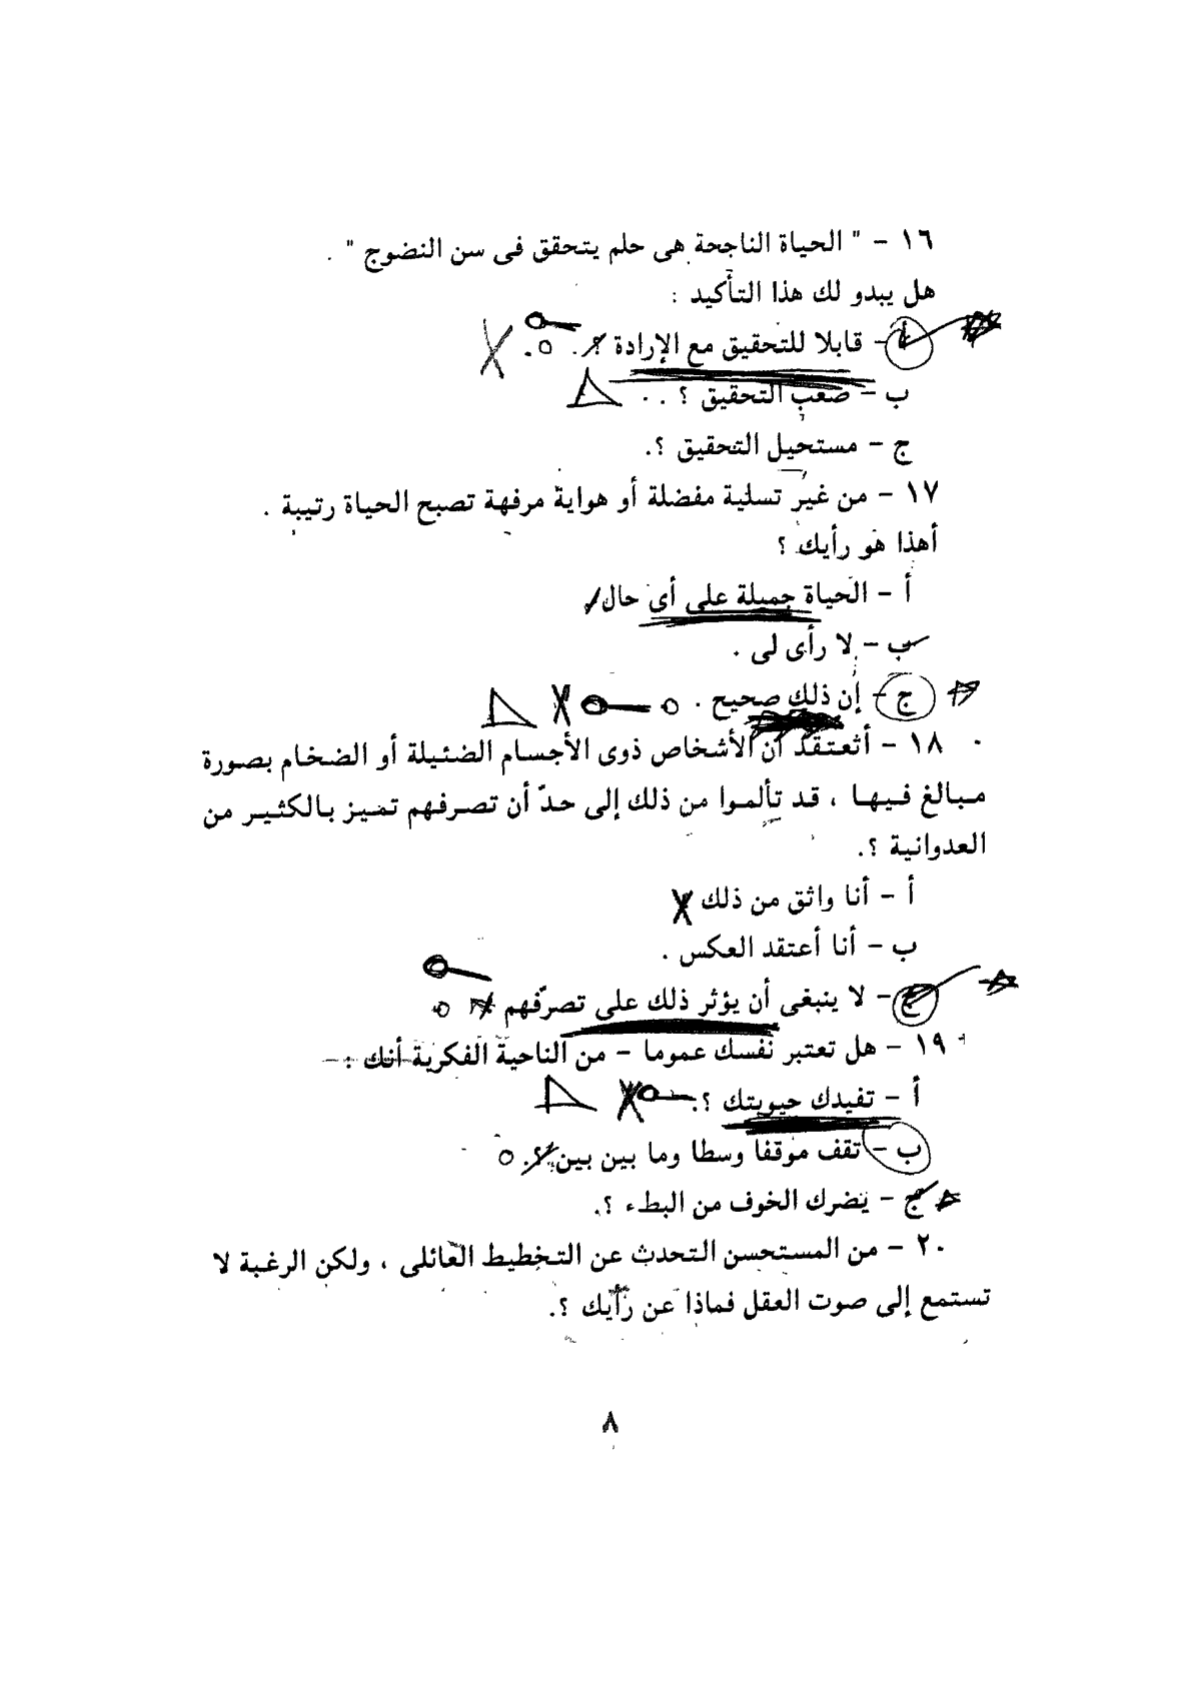 ١٦ - " الحياة الناجحة هى حلم يتحقق فى سن النضوج " .
هل يبدو لك هذا التأكيد :
أ - قابلا للتحقيق مع الإرادة ؟ .
ب - صعب التحقيق ؟ .
ج - مستحيل التحقيق ؟.
١٧ - من غير تسلية مفضلة أو هواية مرفهة تصبح الحياة رتيبة .
أهذا هو رأيك ؟
أ - الحياة جميلة على أى حال
ب - لا رأى لى .
ج - إن ذلك صحيح .
١٨ - أتعتقد أن الأشخاص ذوى الأجسام الضئيلة أو الضخام بصورة
مبالغ فيها ، قد تألموا من ذلك إلى حدّ أن تصرفهم تميز بالكثير من
العدوانية ؟.
أ - أنا واثق من ذلك
ب - أنا أعتقد العكس .
ج - لا ينبغى أن يؤثر ذلك على تصرّفهم
١٩ - هل تعتبر نفسك عموما - من الناحية الفكرية أنك : -
أ - تفيدك حيويتك ؟.
ب - تقف موقفا وسطا وما بين بين ؟.
ج - يضرك الخوف من البطء ؟.
٢٠ - من المستحسن التحدث عن التخطيط العائلى ، ولكن الرغبة لا
تستمع إلى صوت العقل فماذا عن رأيك ؟.
٨